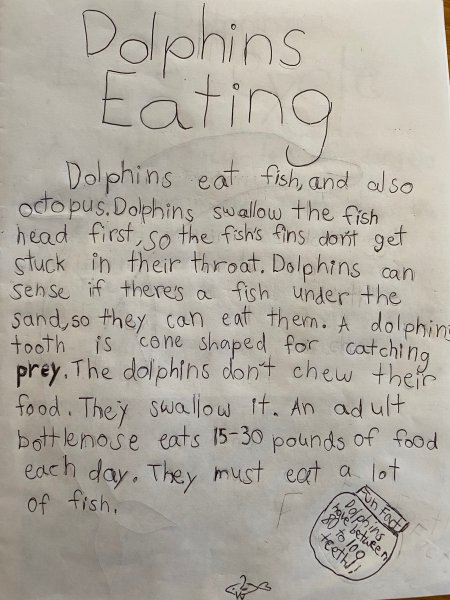 Dolphins
Eating
Dolphins eat fish, and also
octopus. Dolphins swallow the fish
head first, so the fish's fins don't get
stuck in their throat. Dolphins can
sense if there's a fish under the
sand, so they can eat them. A dolphin
tooth is cone shaped for catching
prey. The dolphins don't chew their
food. They swallow it. An adult
bottlenose eats 15-30 pounds of food
each day. They must eat a lot
of fish.
Fun Fact!
Dolphins
have between
80 to 100
teeth!
2